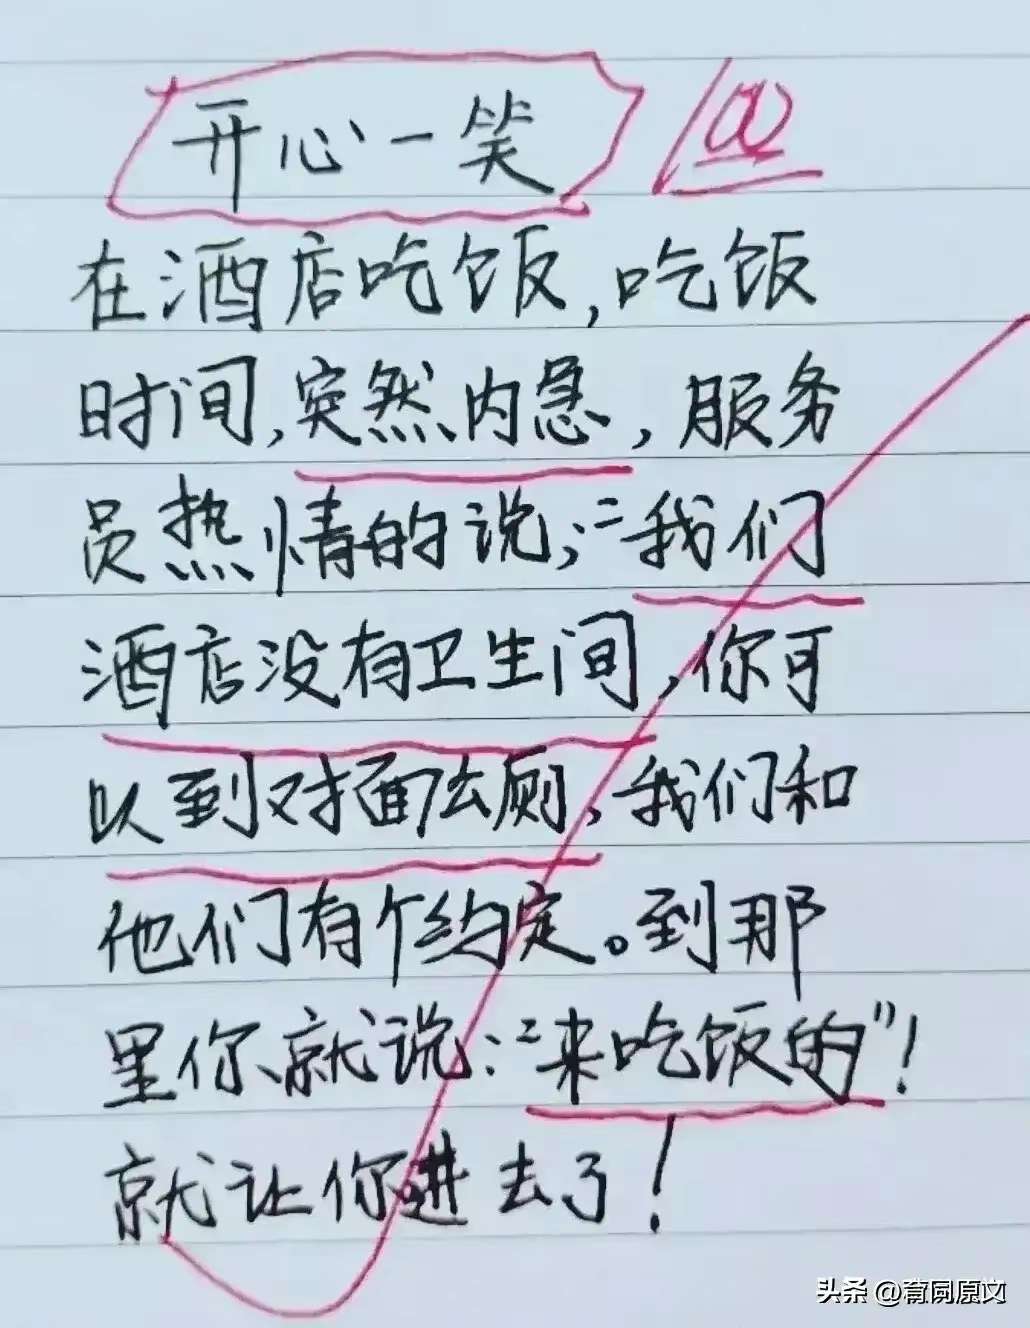 开心一笑 100
在酒店吃饭,吃饭
时间,突然内急,服务
员热情的说;"我们
酒店没有卫生间,你可
以到对面公厕,我们和
他们有个约定。到那
里你就说:"来吃饭的"!
就让你进去了!
头条 @育同原文